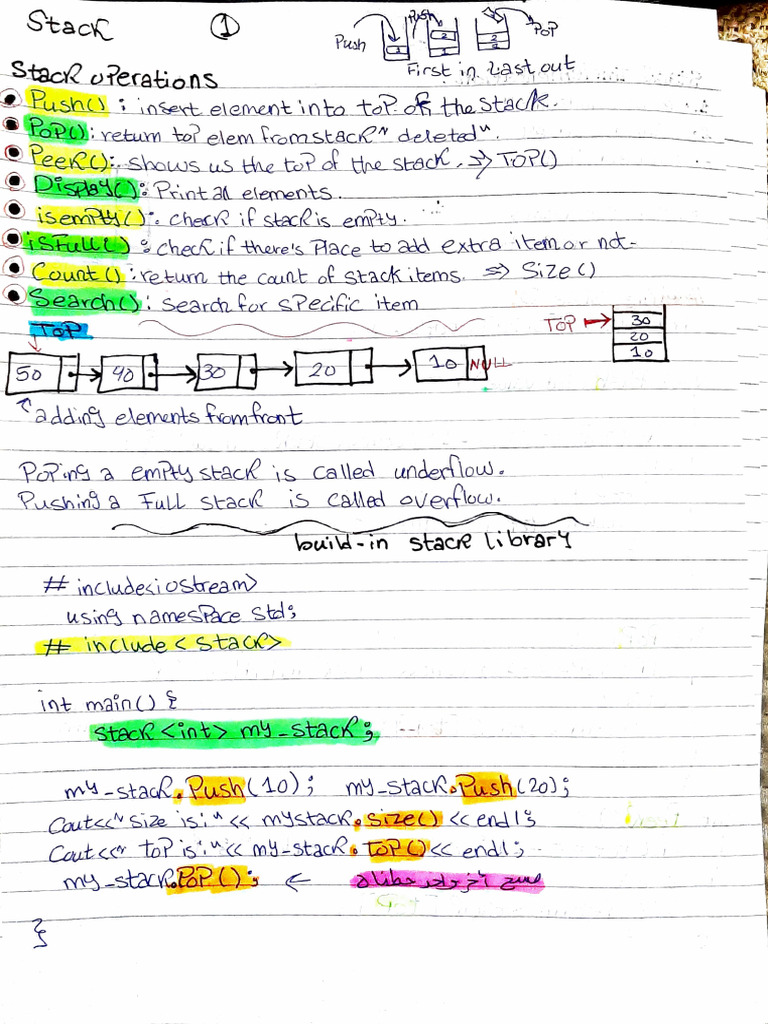 Stack
1
Push
Push
POP
1
2
1
2
1
First in Last out
Stack operations
Push() : insert element into top of the stack.
POP() : return top elem from stack "deleted"
Peek() : shows us the top of the stack. => TOP()
Display() : Print al elements.
isempty() : check if stack is empty.
isFull() : check if there's Place to add extra item or not-
Count() : return the count of stack items. => Size()
Search() : Search for specific item
TOP
TOP
30
20
10
50 40 30 20 10 NULL
adding elements from front
Poping a empty stack is called underflow.
Pushing a Full stack is called overflow.
build-in stack library
# include<iostream>
using namespace std;
# include < stack>
int main() {
stack <int> my_stack;
my_stack.Push(10); my_stack.Push(20);
Cout<<"size is:" << mystack.size() << endl;
Cout<<" top is:" << my_stack.TOP() << endl;
my_stack.POP(); ←
}